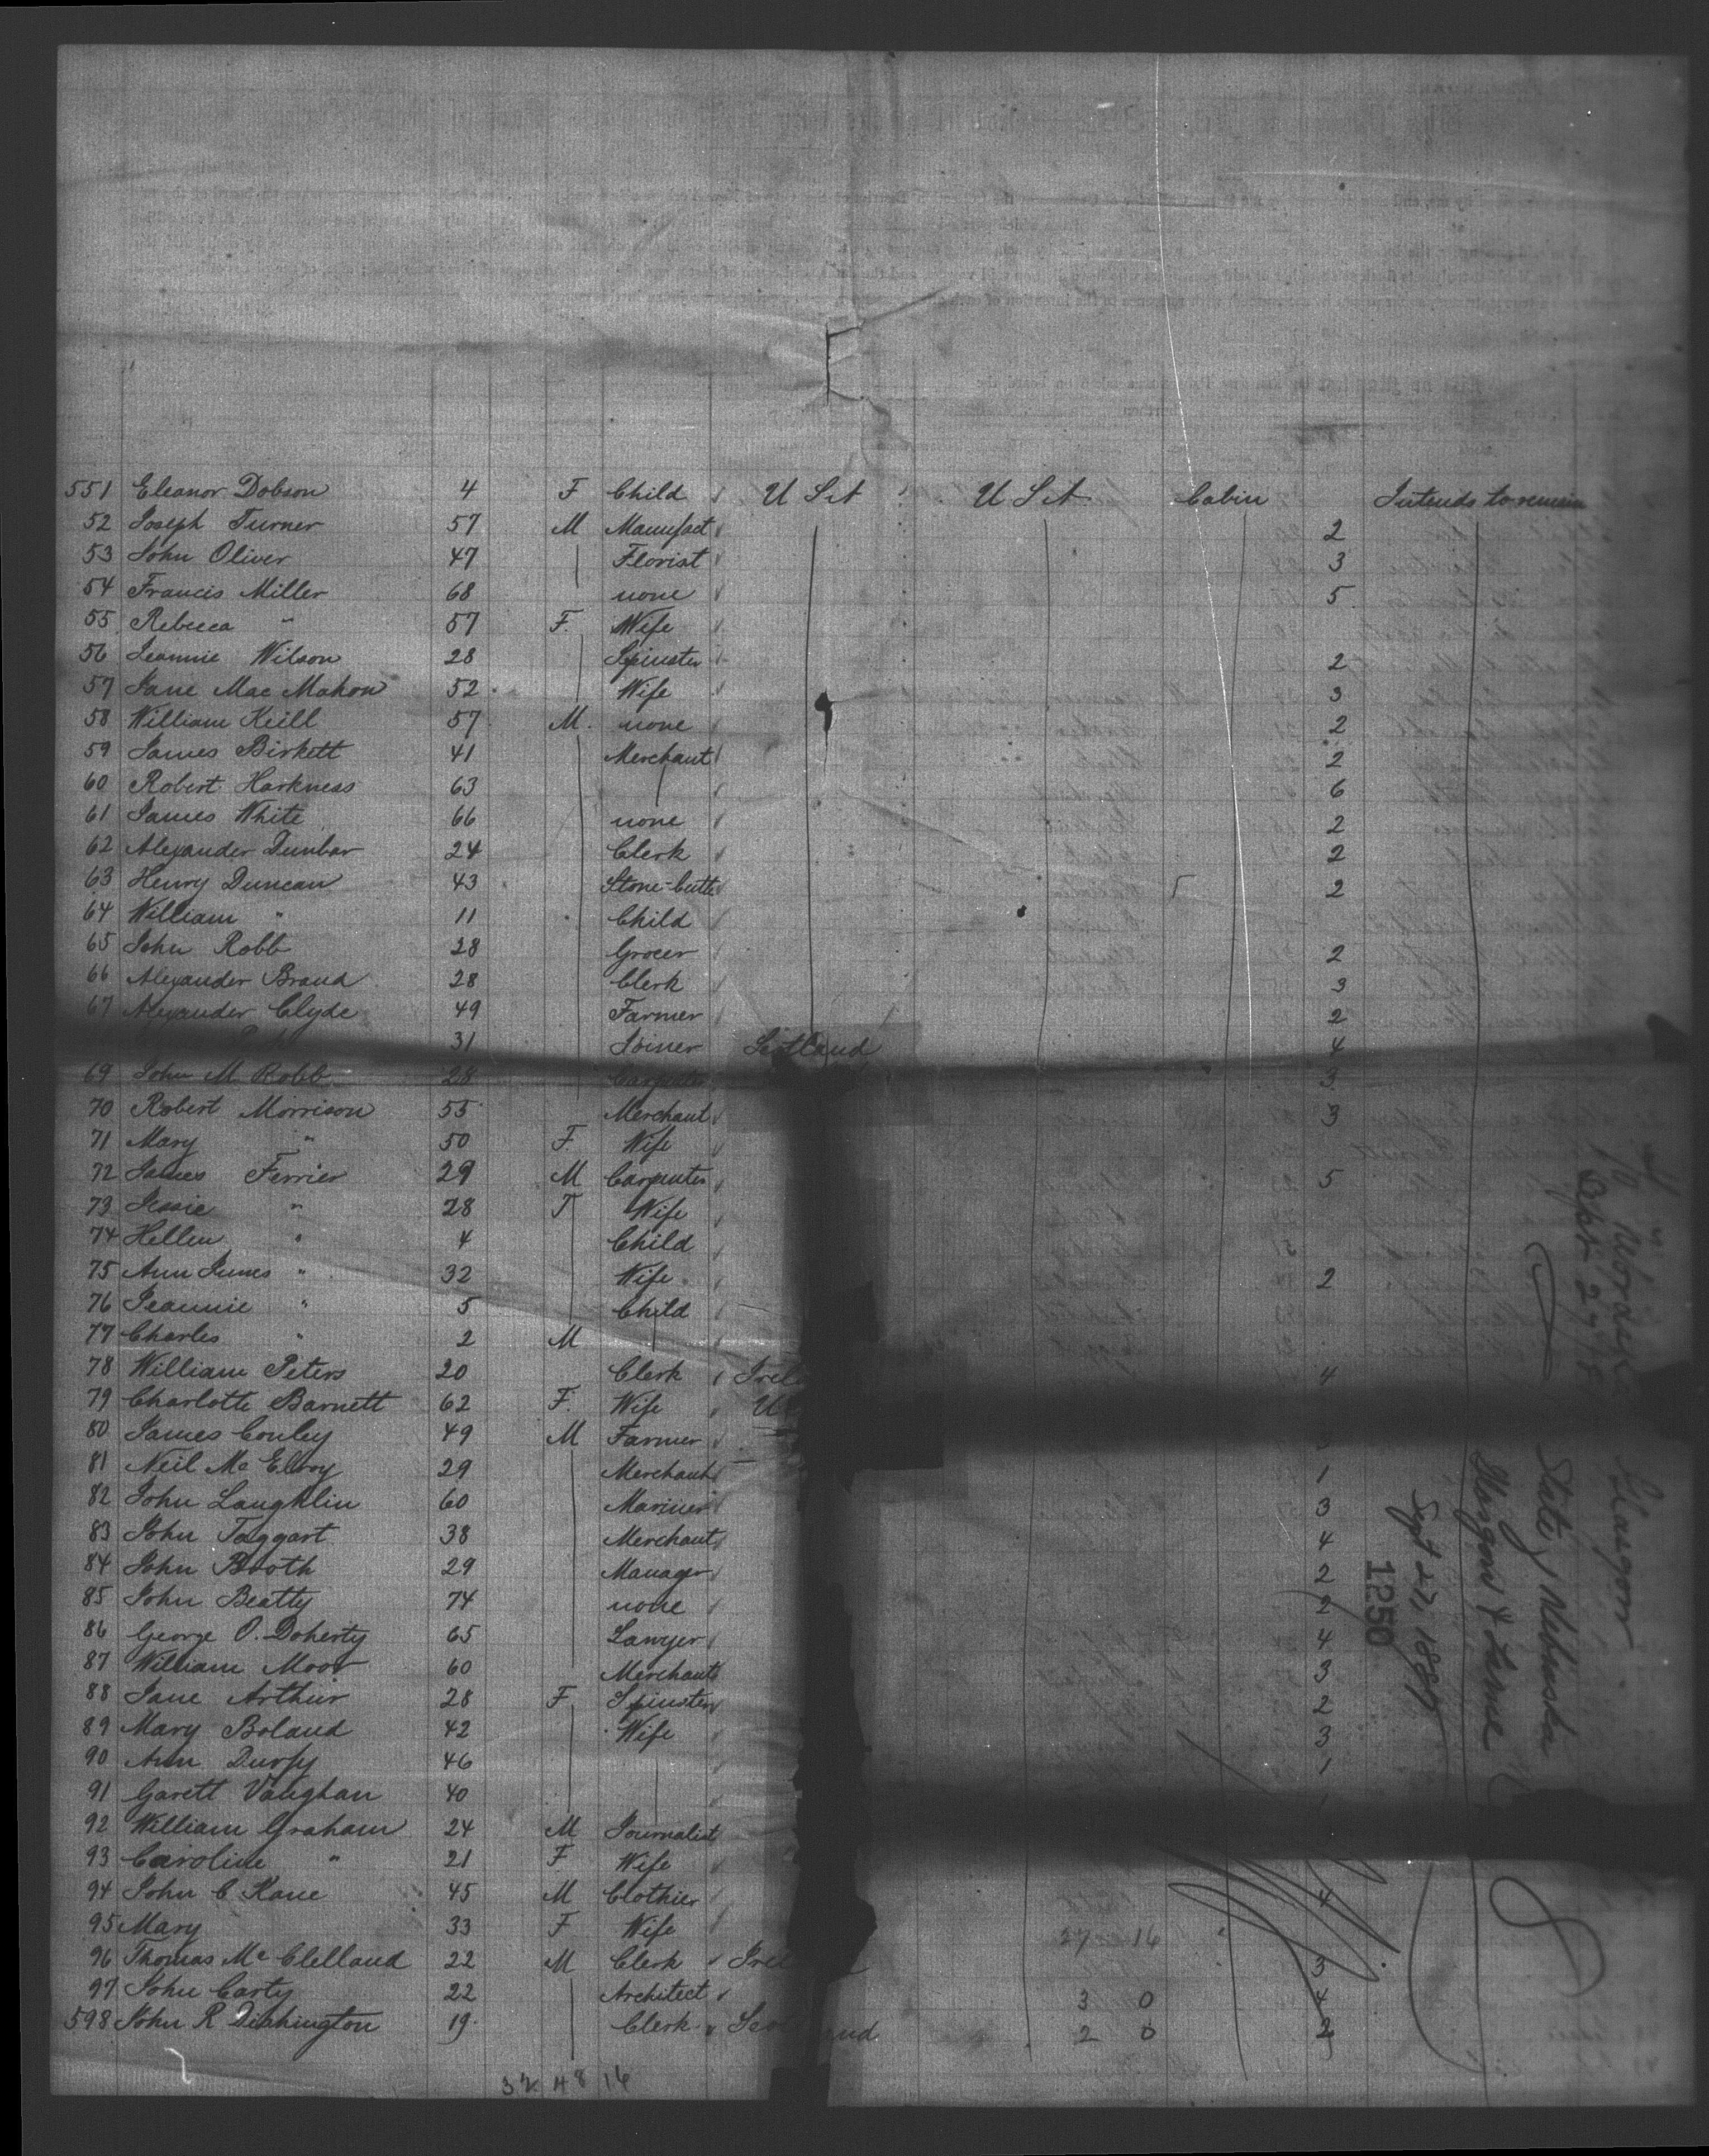 551 Eleanor Dobson 4 F Child U S A U S A Cabin Intends to remain
52 Joseph Turner 57 M Manufact 2
53 John Oliver 47 Florist 3
54 Francis Miller 68 none 5
55 Rebecca " 57 F. Wife
56 Jeannie Wilson 28 Spinster 2
57 Jane Mac Mahon 52 Wife 3
58 William Keill 57 M. none 2
59 James Birkett 41 Merchant 2
60 Robert Harkness 63 6
61 James White 66 none 2
62 Alexander Dunbar 24 Clerk 2
63 Henry Duncan 43 Stone-Cutte 2
64 William " 11 Child
65 John Robb 28 Grocer 2
66 Alexander Brand 28 Clerk 3
67 Alexander Clyde 49 Farmer 2
31 Joiner Scotland 4
69 John M Robb 28 Carpenter 3
70 Robert Morrison 55 Merchant 3
71 Mary " 50 F. Wife
72 James Ferrier 29 M Carpenter 5
73 Jessie " 28 F Wife
74 Hellen " 4 Child
75 Ann Innes " 32 Wife 2
76 Jeannie " 5 Child
77 Charles " 2 M
78 William Peters 20 Clerk Irel 4
79 Charlotte Barnett 62 F. Wife U
80 James Conley 49 M Farmer
81 Neil Mc Elroy 29 Merchant 1
82 John Laughlin 60 Mariner 3
83 John Taggart 38 Merchant 4
84 John Booth 29 Manager 2
85 John Beatty 74 none 2
86 George O. Doherty 65 Lawyer 4
87 William Moor 60 Merchant 3
88 Jane Arthur 28 F Spinster 2
89 Mary Boland 42 Wife 3
90 Ann Durfy 46 1
91 Garett Vaughan 40
92 William Graham 24 M Journalist
93 Caroline " 21 F Wife
94 John C Kane 45 M Clothier 4
95 Mary 33 F Wife
96 Thomas Mc Clelland 22 M Clerk Irel 3
97 John Carty 22 Architect 3 0 4
598 John R Dishington 19 Clerk Scotland 2 0 2
32 48 16
Glasgow
State of Nebraska
Glasgow & Larne
Sept 27, 1887
1250